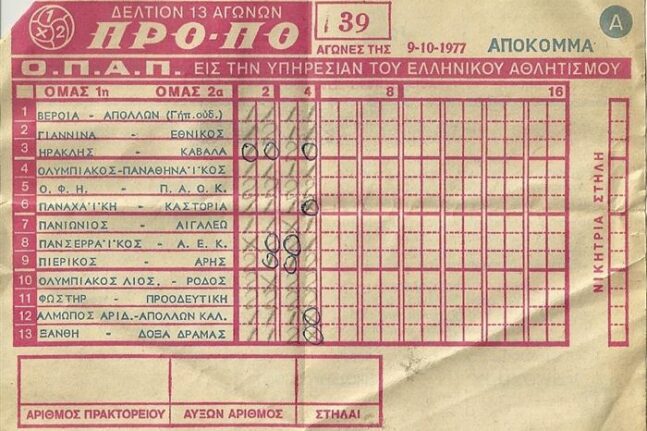 1 X 2
ΔΕΛΤΙΟΝ 13 ΑΓΩΝΩΝ
ΠΡΟ-ΠΟ
39
ΑΓΩΝΕΣ ΤΗΣ 9-10-1977 ΑΠΟΚΟΜΜΑ
Α
Ο.Π.Α.Π. ΕΙΣ ΤΗΝ ΥΠΗΡΕΣΙΑΝ ΤΟΥ ΕΛΛΗΝΙΚΟΥ ΑΘΛΗΤΙΣΜΟΥ
ΟΜΑΣ 1η ΟΜΑΣ 2α 2 4 8 16
1 ΒΕΡΟΙΑ - ΑΠΟΛΛΩΝ (Γήπ.ούδ.)
2 ΓΙΑΝΝΙΝΑ - ΕΘΝΙΚΟΣ
3 ΗΡΑΚΛΗΣ - ΚΑΒΑΛΑ
4 ΟΛΥΜΠΙΑΚΟΣ-ΠΑΝΑΘΗΝΑ·Ι·ΚΟΣ
5 Ο.Φ.Η. - Π.Α.Ο.Κ.
6 ΠΑΝΑΧΑ·Ι·ΚΗ - ΚΑΣΤΟΡΙΑ
7 ΠΑΝΙΩΝΙΟΣ - ΑΙΓΑΛΕΩ
8 ΠΑΝΣΕΡΡΑ·Ι·ΚΟΣ - Α.Ε.Κ.
9 ΠΙΕΡΙΚΟΣ - ΑΡΗΣ
10 ΟΛΥΜΠΙΑΚΟΣ ΛΙΟΣ. - ΡΟΔΟΣ
11 ΦΩΣΤΗΡ - ΠΡΟΟΔΕΥΤΙΚΗ
12 ΑΛΜΩΠΟΣ ΑΡΙΔ.-ΑΠΟΛΛΩΝ ΚΑΛ.
13 ΞΑΝΘΗ - ΔΟΞΑ ΔΡΑΜΑΣ
ΝΙΚΗΤΡΙΑ ΣΤΗΛΗ
ΑΡΙΘΜΟΣ ΠΡΑΚΤΟΡΕΙΟΥ ΑΥΞΩΝ ΑΡΙΘΜΟΣ ΣΤΗΛΑΙ